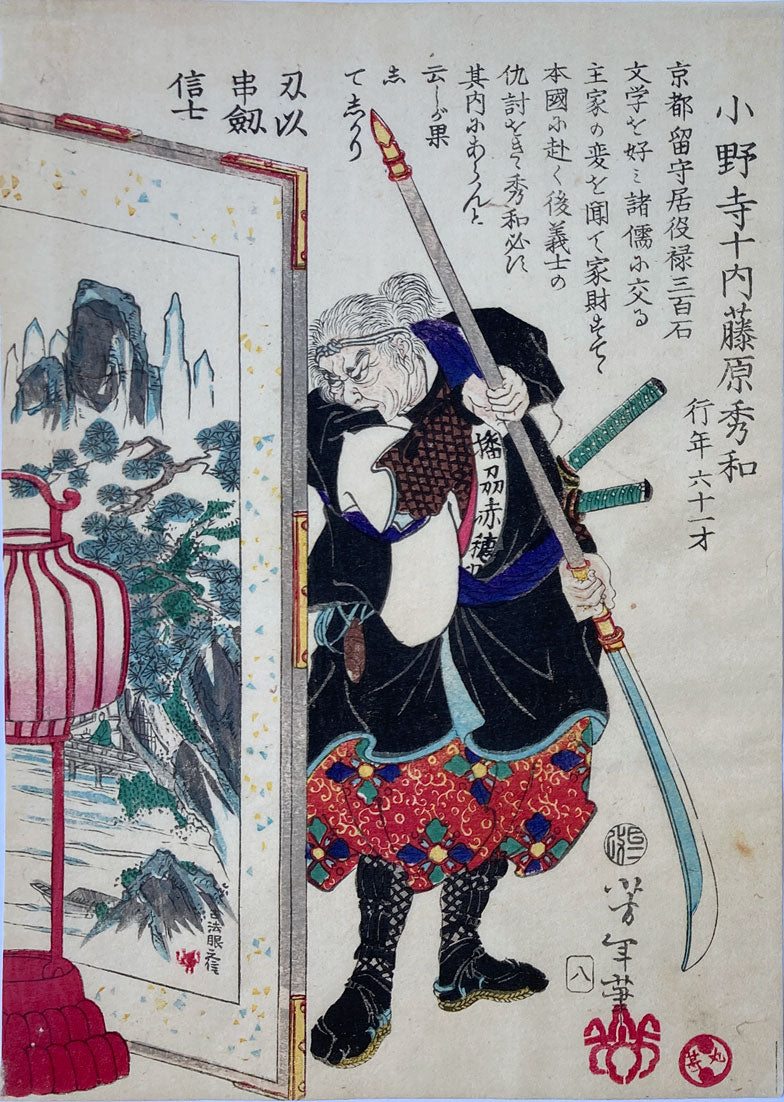 小野寺十内藤原秀和
行年六十一才
京都留守居役禄三百石
文学を好ミ諸儒に交る
主家の変を聞て家財をすて
本國に赴く後義士の
仇討をきゝ秀和必ず
其内にあらんと
云しが果
し
てしかり
刃以
串劔
信士
播刕赤穂
法眼元信
八
芳年筆
丸甚